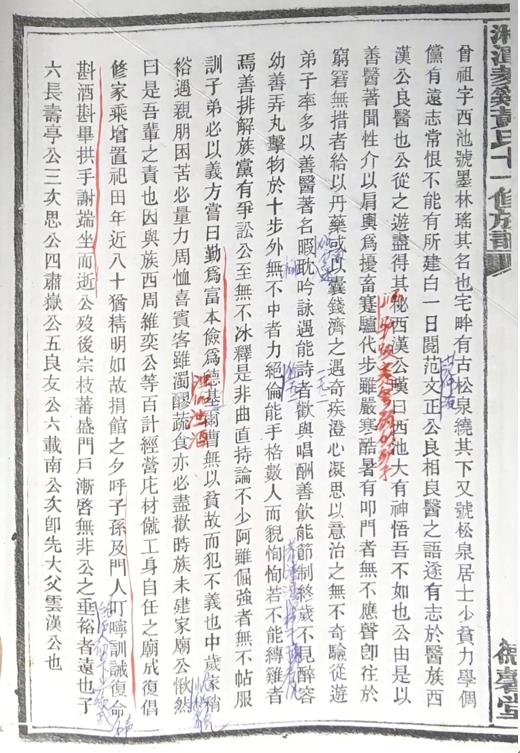 曾祖字西池號墨林瑤其名也宅畔有古松泉德其下又號松泉居士少貧力學倜
儻有遠志常恨不能有所建白一日閱范文正公良相良醫之語遂有志於醫族西
漢公良醫也公從之遊盡得其秘西漢公嘆曰西池大有神悟吾不如也公由是以
善醫著聞性介以肩輿爲擾畜蹇驢代步雖嚴寒酷暑有叩門者無不應聲卽往於
窮窘無措者給以丹藥或以囊錢濟之遇奇疾澄心凝思以意治之無不奇驗從遊
弟子率多以善醫著名暇耽吟詠遇能詩者歡與唱酬善飲能節制終歲不見醉容
幼善弄丸擊物於十步外無不中者力絕倫能手格數人而貌恂恂若不能縛雞者
焉善排解族黨有爭訟公至無不冰釋是非曲直持論不少阿雖倔強者無不帖服
訓子弟必以義方嘗曰勤爲富本儉爲德基爾曹無以貧故而犯不義也中歲家稍
裕遇親朋困苦必量力周恤喜賓客雖濁醪蔬食亦必盡歡時族未建家廟公愀然
曰是吾輩之責也因與族西周維奕公等百計經營庀材僦工身自任之廟成復倡
修家乘增置祀田年近八十猶精明如故捐館之夕呼子孫及門人叮嚀訓誡復命
斟酒斟畢拱手謝端坐而逝公歿後宗枝蕃盛門戶漸啓無非公之垂裕者遠也子
六長壽亭公三次思公四肅嶽公五良友公六載南公次卽先大父雲漢公也